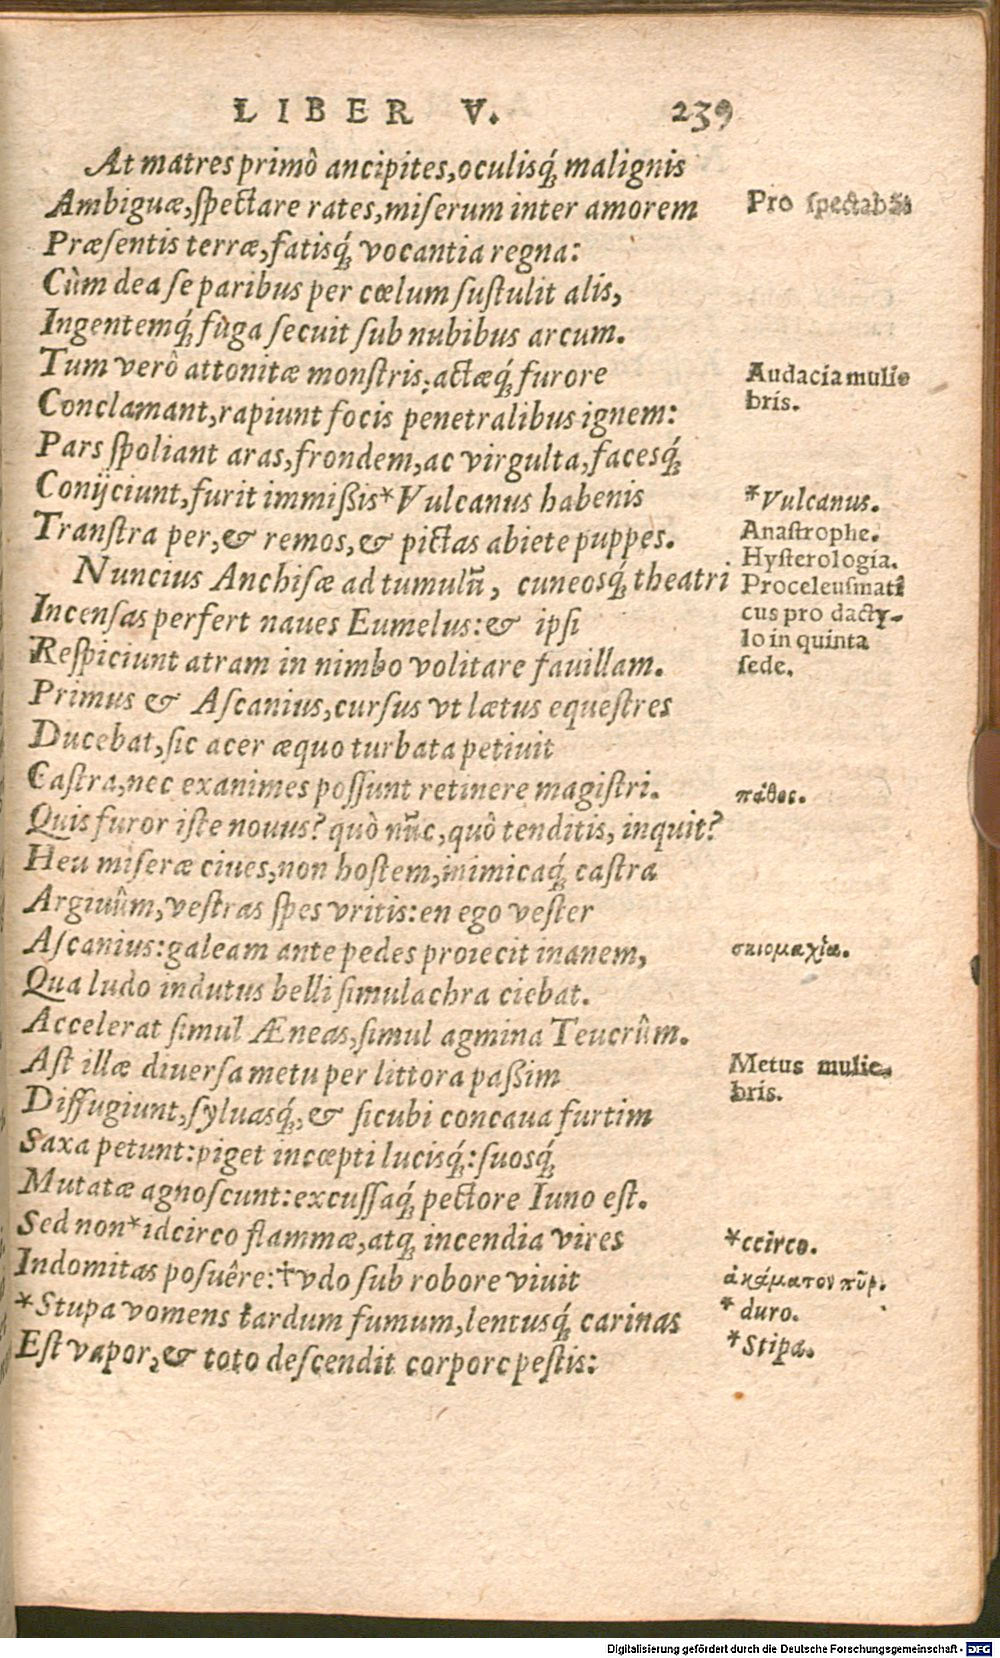 LIBER V. 239
At matres primò ancipites, oculisq́; malignis
Ambiguæ, ſpectare rates, miſerum inter amorem
Præſentis terræ, fatisq́; vocantia regna:
Cùm dea ſe paribus per cœlum ſuſtulit alis,
Ingentemq́; fuga ſecuit ſub nubibus arcum.
Tum verò attonitæ monſtris, actæq́; furore
Conclamant, rapiunt focis penetralibus ignem:
Pars ſpoliant aras, frondem, ac virgulta, facesq́;
Conijciunt, furit immiſsis *Vulcanus habenis
Tranſtra per, & remos, & pictas abiete puppes.
Nuncius Anchiſæ ad tumulū, cuneosq́; theatri
Incenſas perfert naues Eumelus: & ipſi
Reſpiciunt atram in nimbo volitare fauillam.
Primus & Aſcanius, curſus vt lætus equeſtres
Ducebat, ſic acer æquo turbata petiuit
Caſtra, nec exanimes poſſunt retinere magiſtri.
Quis furor iſte nouus? quò nūc, quò tenditis, inquit?
Heu miſeræ ciues, non hoſtem, inimicaq́; caſtra
Argiuûm, veſtras ſpes vritis: en ego veſter
Aſcanius: galeam ante pedes proiecit inanem,
Qua ludo indutus belli ſimulachra ciebat.
Accelerat ſimul Æneas, ſimul agmina Teucrûm.
Aſt illæ diuerſa metu per littora paſsim
Diffugiunt, ſyluasq́;, & ſicubi concaua furtim
Saxa petunt: piget incœpti lucisq́;: ſuosq́;
Mutatæ agnoſcunt: excuſſaq́; pectore Iuno eſt.
Sed non *idcirco flammæ, atq; incendia vires
Indomitas poſuêre: †vdo ſub robore viuit
*Stupa vomens tardum fumum, lentusq́; carinas
Eſt vapor, & toto deſcendit corpore peſtis:
Pro ſpectabāt
Audacia mulie
bris.
*Vulcanus.
Anaſtrophe.
Hyſterologia.
Proceleuſmati
cus pro dacty-
lo in quinta
ſede.
πάθος.
σκιομαχία.
Metus mulie-
bris.
*ccirco.
ἀκάματον πῦρ.
* duro.
*Stipa.
Digitalisierung gefördert durch die Deutsche Forschungsgemeinschaft - DFG